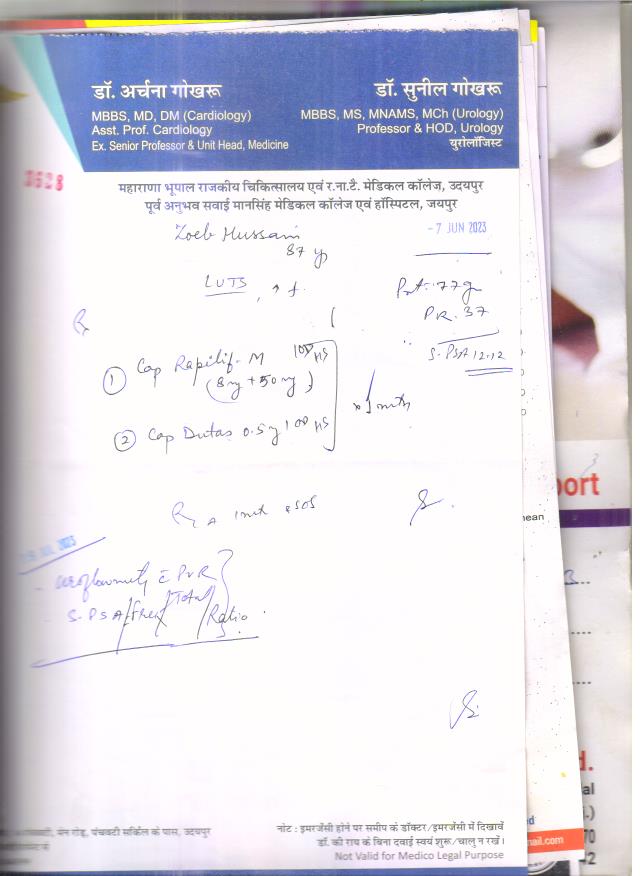 डॉ. अर्चना गोखरू
MBBS, MD, DM (Cardiology)
Asst. Prof. Cardiology
Ex. Senior Professor & Unit Head, Medicine
डॉ. सुनील गोखरू
MBBS, MS, MNAMS, MCh (Urology)
Professor & HOD, Urology
युरोलॉजिस्ट
3628
महाराणा भूपाल राजकीय चिकित्सालय एवं र.ना.टै. मेडिकल कॉलेज, उदयपुर
पूर्व अनुभव सवाई मानसिंह मेडिकल कॉलेज एवं हॉस्पिटल, जयपुर
Zoeb Hussain
-7 JUN 2023
87 y
LUTS
Prst. 77g
PR. 37
S. PSA 12.12
① Cap Rapilif-M 1OD HS
(8mg + 50mg)
② Cap Dutas 0.5 1OD HS
x 1 mth
JUL 2023
uroflowmetry c PVR
S. PSA / Free / Total / Ratio
मेन रोड़, पंचवटी सर्किल के पास, उदयपुर
नोट : इमरजेंसी होने पर समीप के डॉक्टर/इमरजेंसी में दिखावें
डॉ. की राय के बिना दवाई स्वयं शुरू/चालु न रखें।
Not Valid for Medico Legal Purpose
port
mean
ail.com